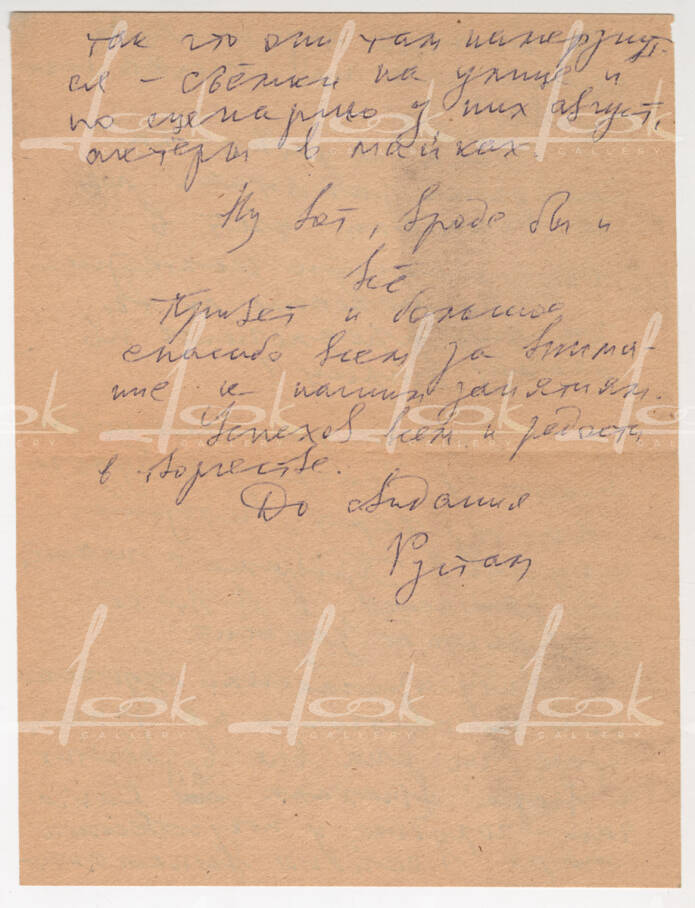 так что они там намерзнут-
ся – съёмки на улице и
по сценарию у них август,
актёры в майках.
Ну вот, вроде бы и
всё
Привет и большое
спасибо всем за внима-
ние к нашим занятиям.
Успехов всем и радости
в творчестве.
До свидания
Рустам
look
GALLERY
look
GALLERY
look
GALLERY
look
GALLERY
look
GALLERY
look
GALLERY
look
GALLERY
look
GALLERY
look
GALLERY